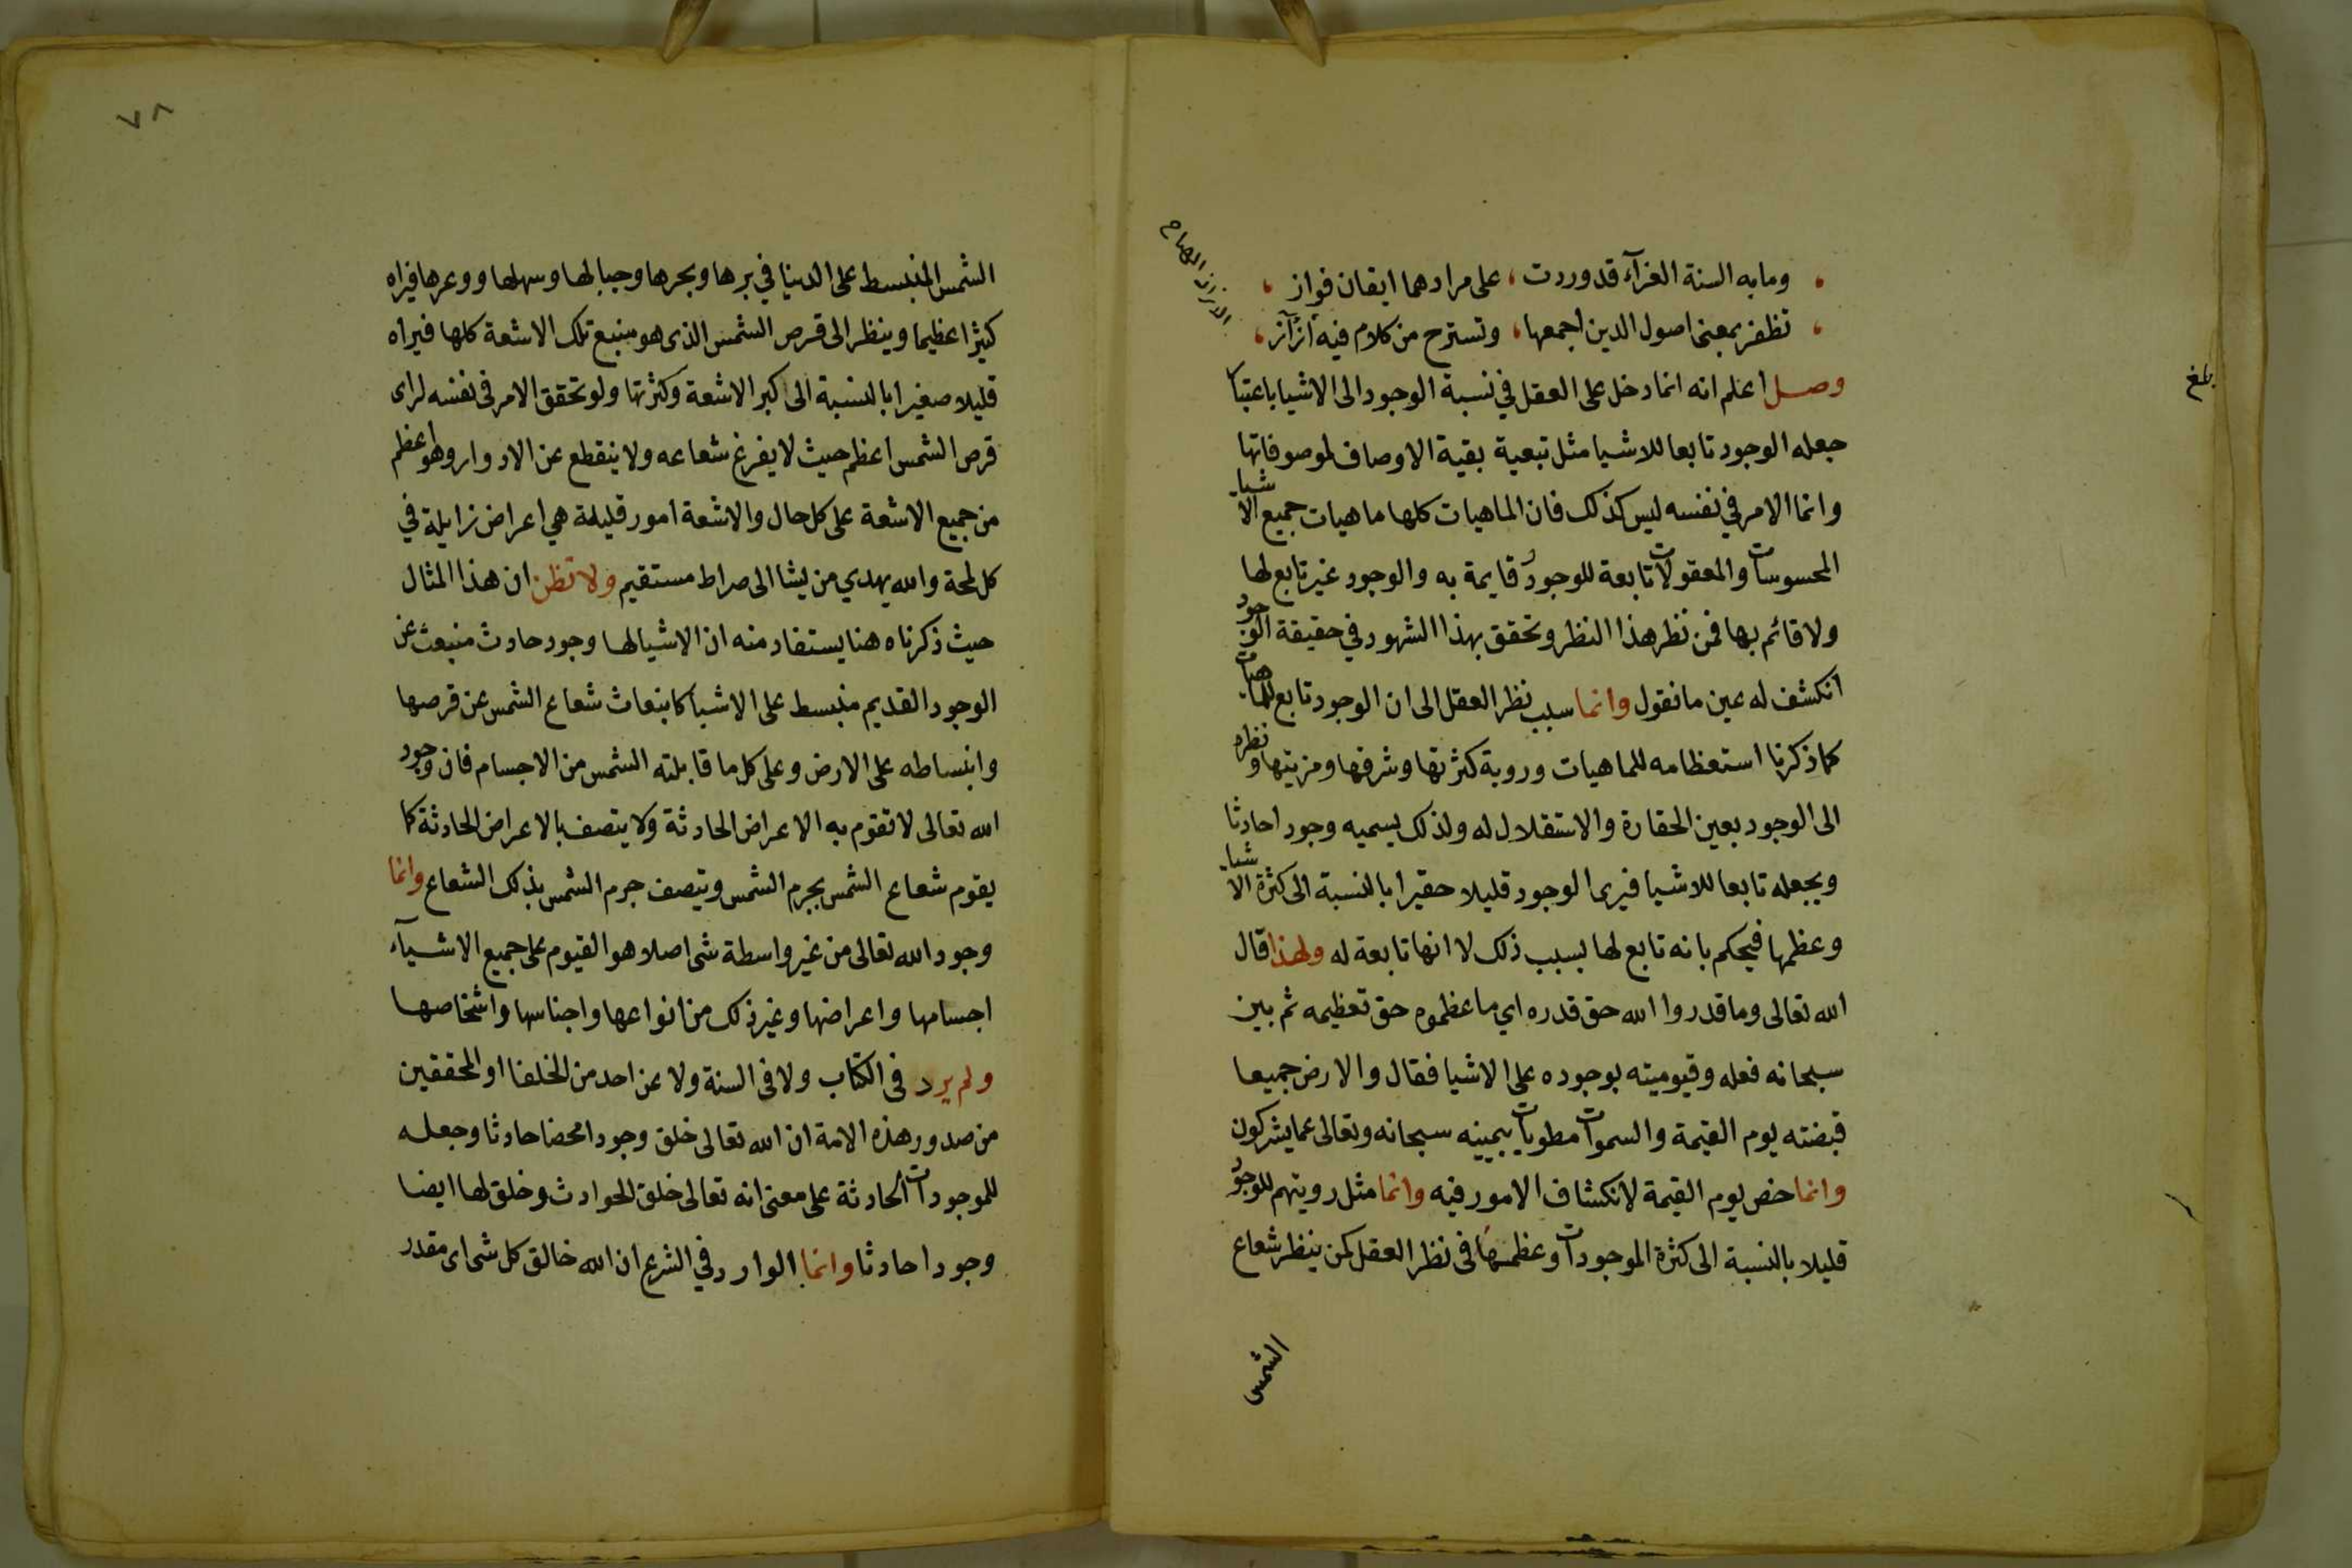 وما به السنة الغرآء قد وردت ، على مرادهما ايقان فواز ،
تظفز بمعنى اصول الدين اجمعها ، وتسترح من كلام فيه أزآز ،
وصل اعلم انه انما دخل على العقل في نسبة الوجود الى الاشيا باعتبا
جعله الوجود تابعا للاشيا مثل تبعية بقية الاوصاف لموصوفاتها
وانما الامر في نفسه ليس كذلك فان الماهيات كلها ماهيات جميع الاشيا
المحسوسات والمعقولات تابعة للوجود قايمة به والوجود غير تابع لها
ولا قائم بها فمن نظر هذا النظر وتحقق بهذا الشهود في حقيقة الوجود
انكشف له عين ما نقول وانما سبب نظر العقل الى ان الوجود تابع للماهيات
كما ذكرنا استعظامه للماهيات وروية كثرتها وشرفها ومزيتها ونظره
الى الوجود بعين الحقارة والاستقلال له ولذلك يسميه وجودا حادثا
ويجعله تابعا للاشيا فيرى الوجود قليلا حقيرا بالنسبة الى كثرة الاشيا
وعظمها فيحكم بانه تابع لها بسبب ذلك لا انها تابعة له ولهذا قال
الله تعالى وما قدروا الله حق قدره اي ما عظموه حق تعظيمه ثم بين
سبحانه فعله وقيوميته بوجوده على الاشيا فقال والارض جميعا
قبضته يوم القيمة والسموات مطويات بيمينه سبحانه وتعالى عما يشركون
وانما خص يوم القيمة لانكشاف الامور فيه وانما مثل رويتهم للوجود
قليلا بالنسبة الى كثرة الموجودات وعظمتها في نظر العقل كمن ينظر شعاع
الشمس
بلغ
٧٨
الشمس المنبسط على الدنيا في برها وبحرها وجبالها وسهلها ووعرها فيراه
كثيرا عظيما وينظر الى قرص الشمس الذي هو منبع تلك الاشعة كلها فيراه
قليلا صغيرا بالنسبة الى كبر الاشعة وكثرتها ولو تحقق الامر في نفسه لراى
قرص الشمس اعظم حيث لا يفرغ شعاعه ولا ينقطع عن الادوار وهو اعظم
من جميع الاشعة على كل حال والاشعة امور قليلة هي اعراض زايلة في
كل لمحة والله يهدي من يشا الى صراط مستقيم ولا تظن ان هذا المثال
حيث ذكرناه هنا يستفاد منه ان الاشيا لها وجود حادث منبعث عن
الوجود القديم منبسط على الاشيا كانبعاث شعاع الشمس عن قرصها
وانبساطه على الارض وعلى كل ما قابلته الشمس من الاجسام فان وجود
الله تعالى لا تقوم به الاعراض الحادثة ولا يتصف بالاعراض الحادثة كما
يقوم شعاع الشمس بجرم الشمس ويتصف جرم الشمس بذلك الشعاع وانما
وجود الله تعالى من غير واسطة شى اصلا هو القيوم على جميع الاشيآء
اجسامها واعراضها وغير ذلك من انواعها واجناسها واشخاصها
ولم يرد في الكتاب ولا في السنة ولا عن احد من الخلفا او المحققين
من صدور هذه الامة ان الله تعالى خلق وجودا محضا حادثا وجعله
للموجودات الحادثة على معنى انه تعالى خلق الحوادث وخلق لها ايضا
وجودا حادثا وانما الوارد في الشرع ان الله خالق كل شى اى مقدر